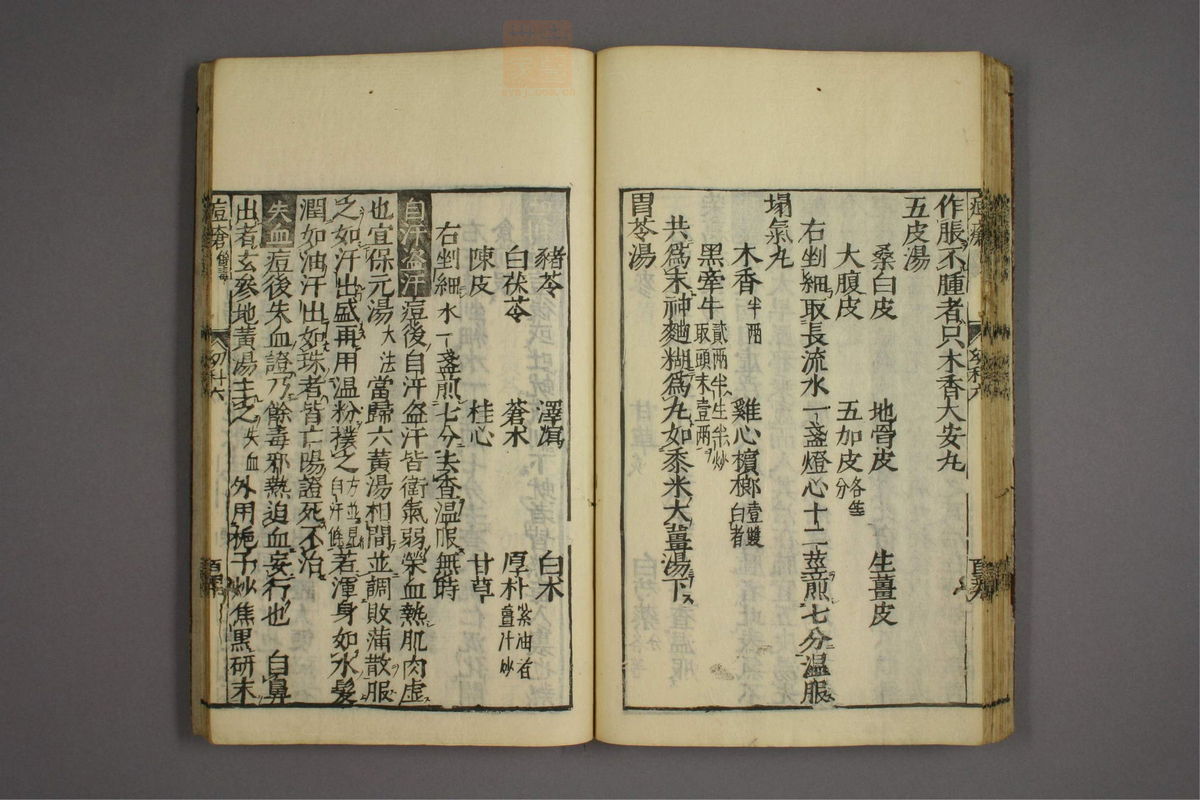 作脹不腫者只木香大安丸
五皮湯
桑白皮 地骨皮 生薑皮
大腹皮 五加皮各等分
右剉細取長流水一盞燈心十二莖煎七分溫服
塌氣丸
木香半兩 雞心檳榔壹雙白者
黑牽牛貳兩半生半炒取頭末壹兩
共爲末神麯糊爲丸如黍米大薑湯下
胃苓湯
豬苓 澤瀉 白朮
白茯苓 蒼朮 厚朴紫油者薑汁炒
陳皮 桂心 甘草
右剉細水一盞煎七分去查溫服無時
自汗盗汗 痘後自汗盗汗皆衛氣弱榮血熱肌肉虛
也宜保元湯大法當歸六黃湯相間並調敗蒲散服
之如汗出盛再用溫粉撲之方並見自汗條若渾身如水髮
潤如油汗出如珠者皆亡陽證死不治
失血 痘後失血證乃餘毒邪熱迫血妄行也 自鼻
出者玄參地黃湯主之失血外用梔子炒焦黑研末
痘瘡